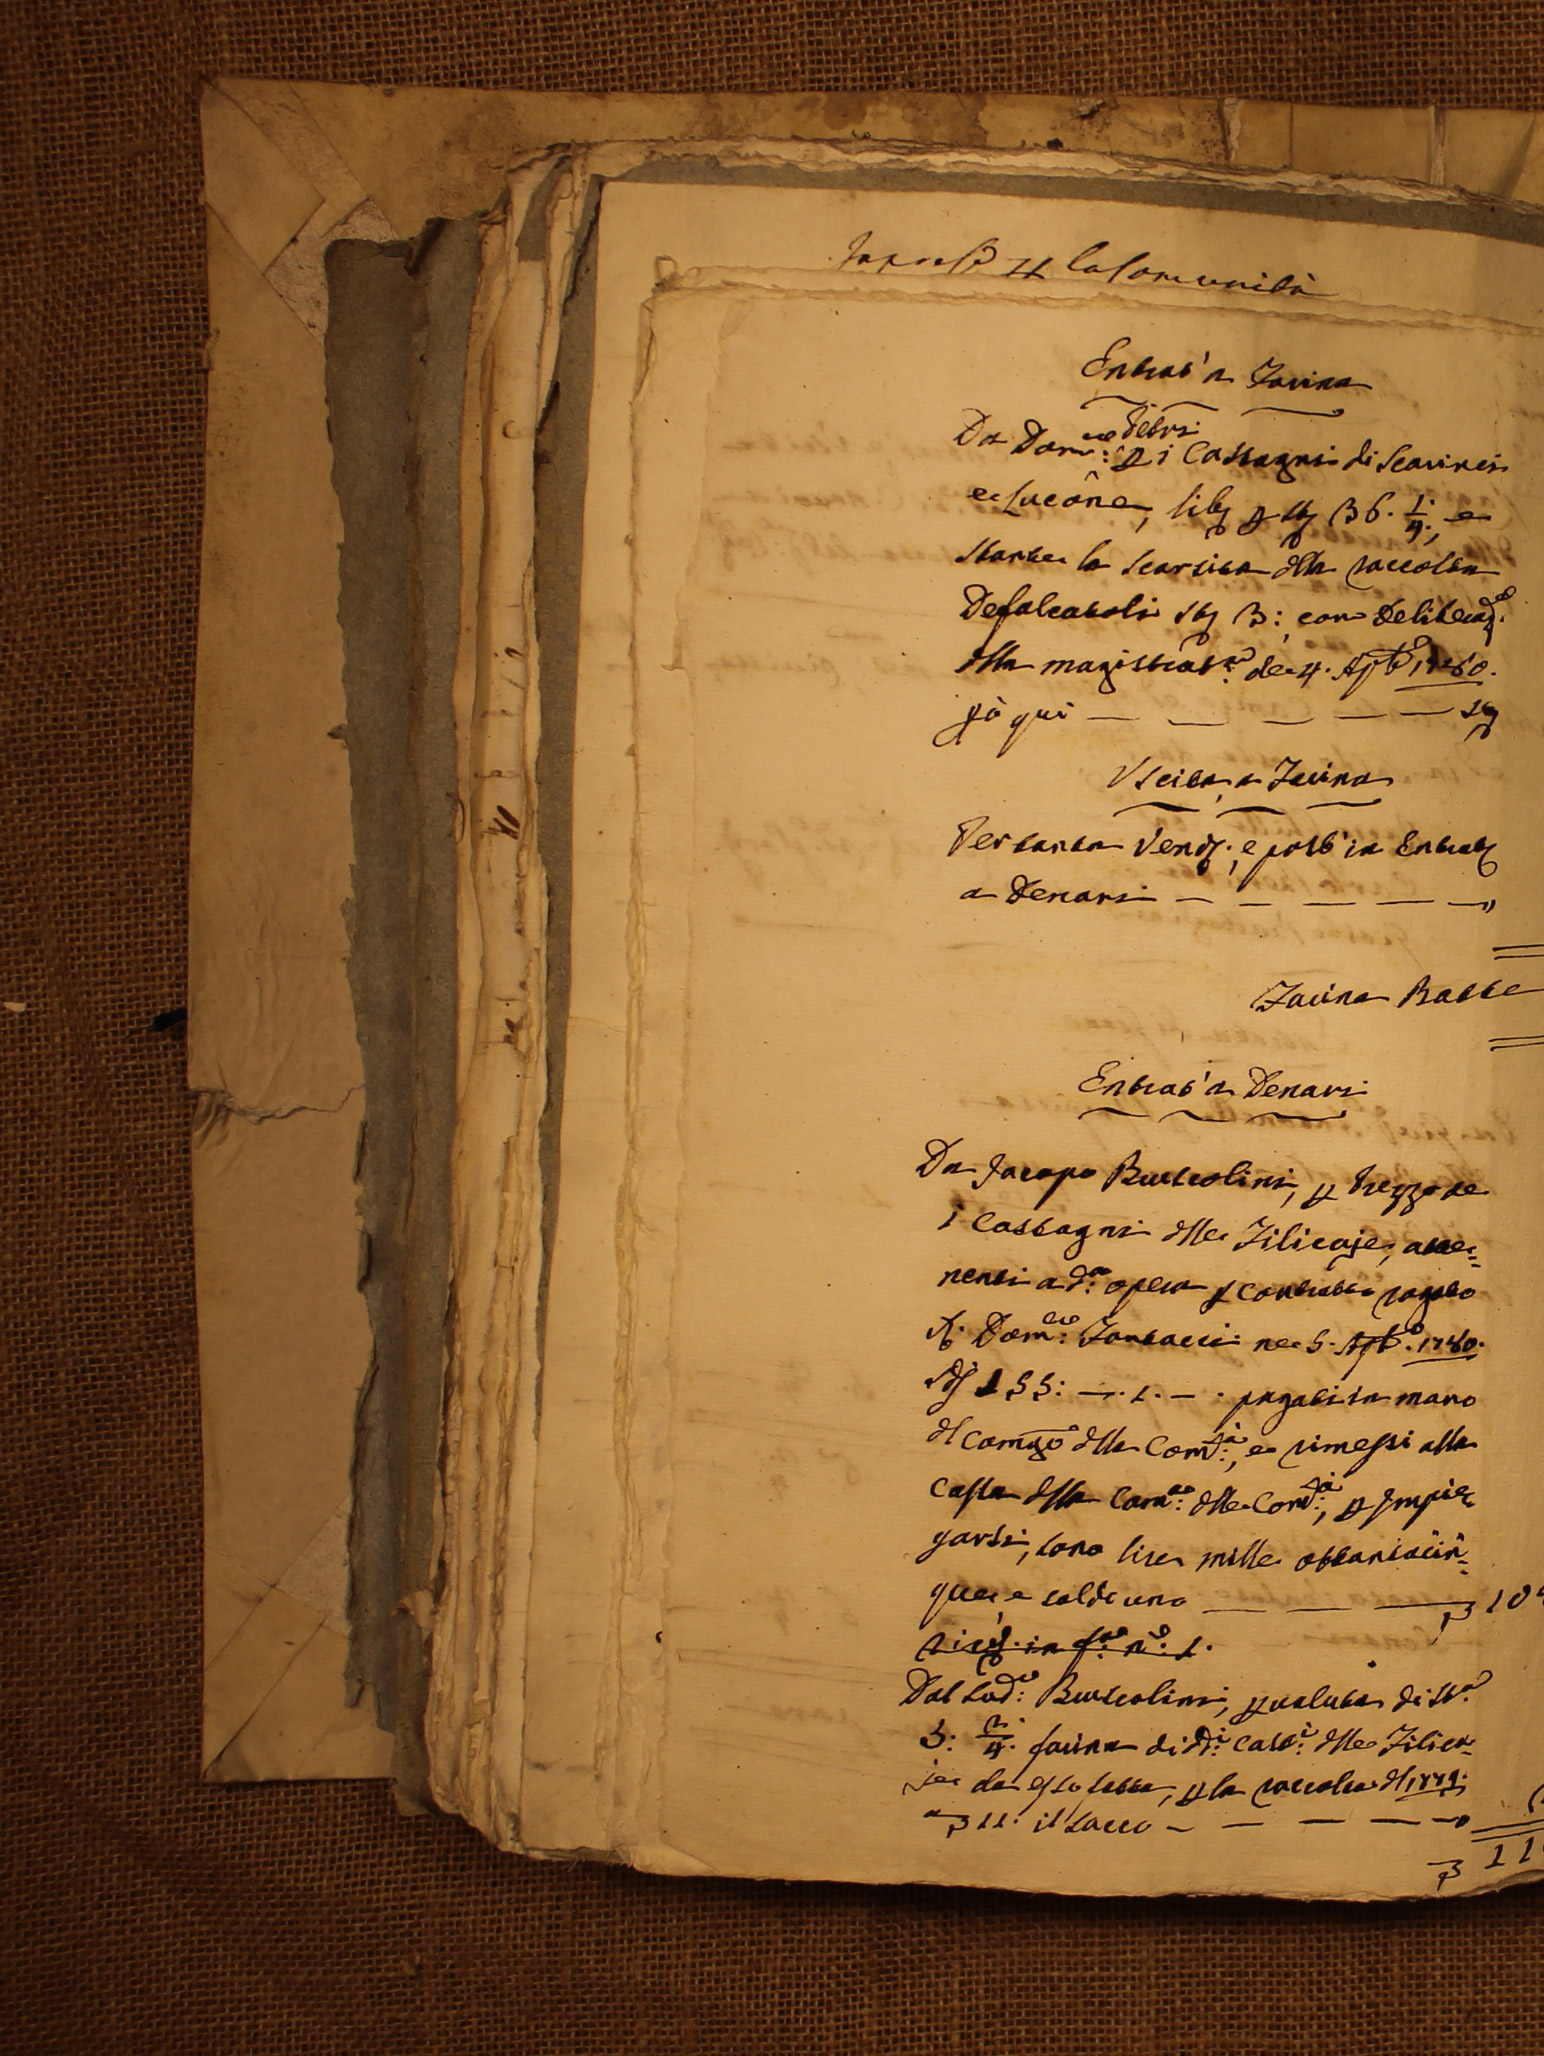 per la Comunità
Entrat'a Farina
Da Dom.co Petri
p i Castagni di Scarinci
e Lucone, lib p sta 36. 1/4., e
stante la scarsita dlla raccolta
Defalcatoli sta 3: con Deliberaz.e
dlla magistrat.a de 4. Aple 1780.
pò qui — — — — — sta
Uscita a Farina
Per tanta Vend.; e post'in Entrat
a Denari — — — — — "
Farina Batte
Entrat'a Denari
Da Jacopo Bertolini, p Prezzo de
i Castagni dlle Filicaje, atte=
nenti a d.a opera p Contratto rogato
Dom.co Fantacci ne 5. Aple. 1780.
155: —. 1. — . pagati in mano
dl Camgo dlla Com.tà, e rimessi alla
Cassa dlla Cam.a dlle Com.tà, p Impie
garsi, sono lire mille ottantacin=
que, e soldi uno — — —
in f.a n.o 1.
Dal sud.o Bertolini, p valuta di sta
3/4. farina di d.i Cast.i dlle Filica=
je da esso fatta, p la raccolta dl 1779.
11. il sacco — — — — "